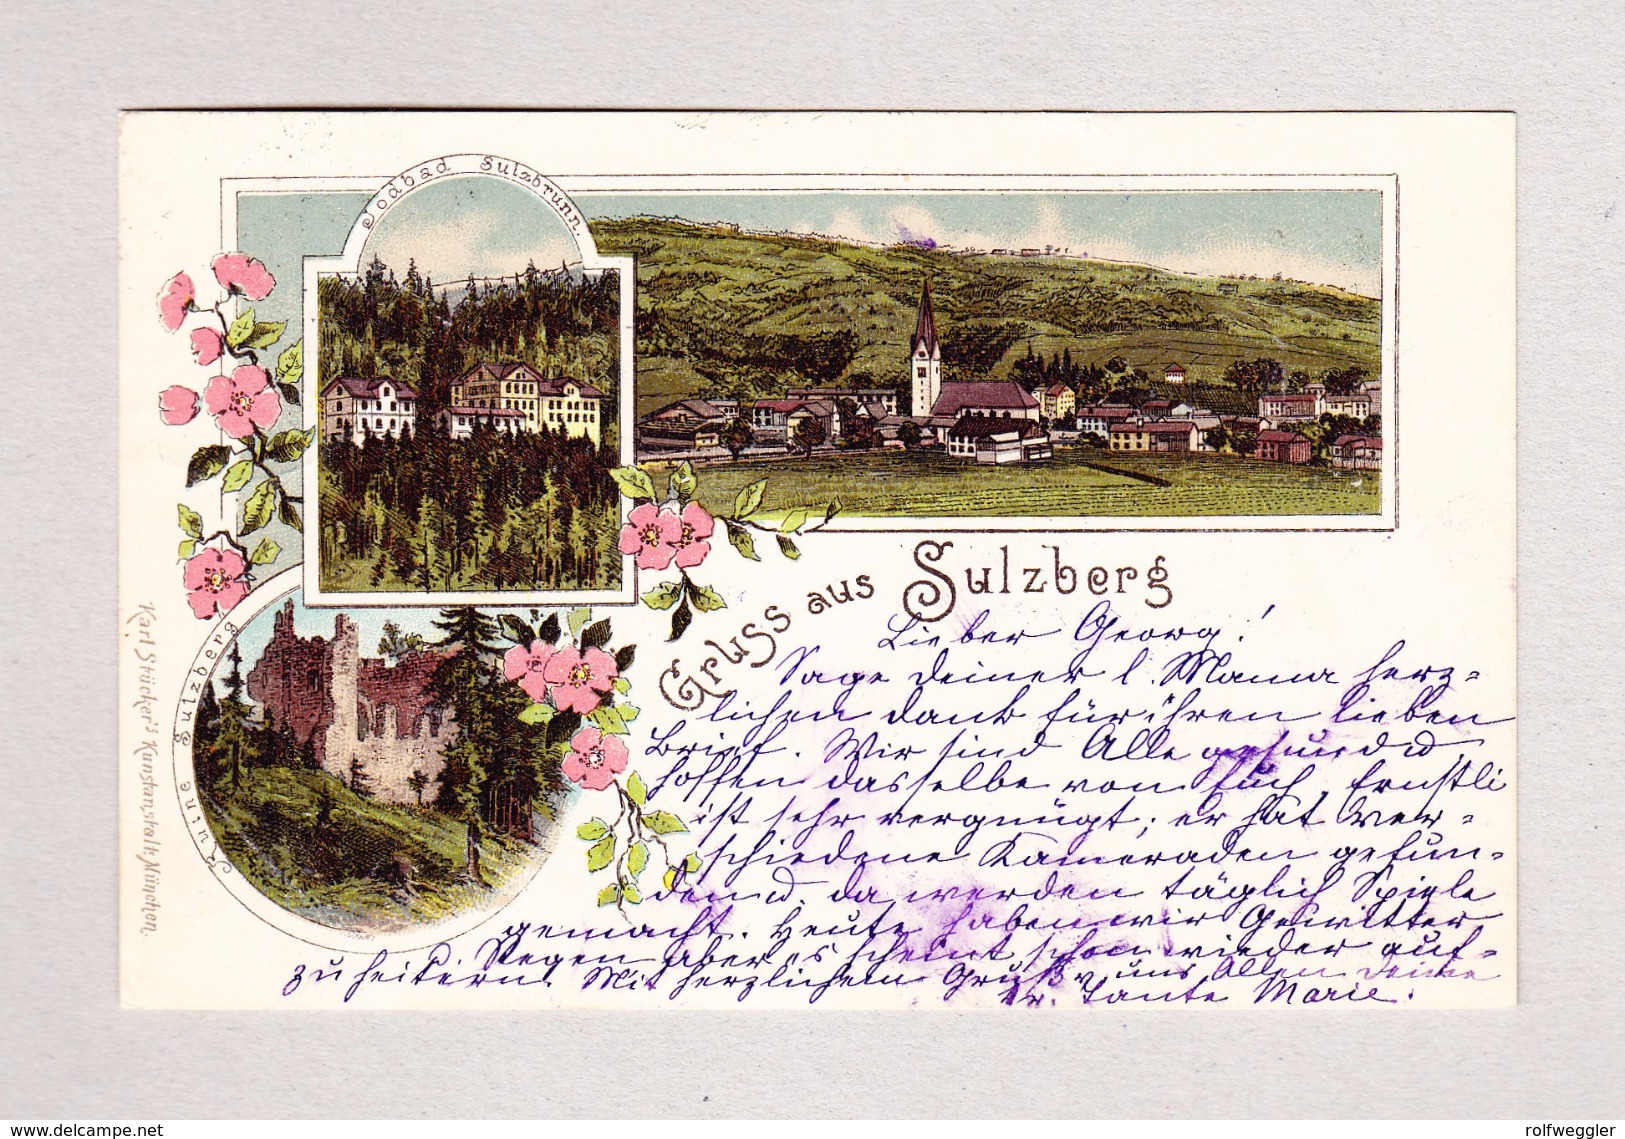 Jodbad Sulzbrunn.
Ruine Sulzberg
Karl Stücker's Kunstanstalt, München.
Gruss aus Sulzberg
Lieber Georg!
Sage deiner l. Mama herz-
lichen dank für ihren lieben
Brief. Wir sind Alle gesund u
hoffen dasselbe von Euch. Ernstli
ist sehr vergnügt; er hat ver-
schiedene Kameraden gefun-
den u. da werden täglich Spiele
gemacht. Heute haben wir Gewitter
Regen aber es scheint schon wieder auf-
zuheitern. Mit herzlichem Gruß v. uns Allen Deine
tr. Tante Marie.
www.delcampe.net
rolfweggler